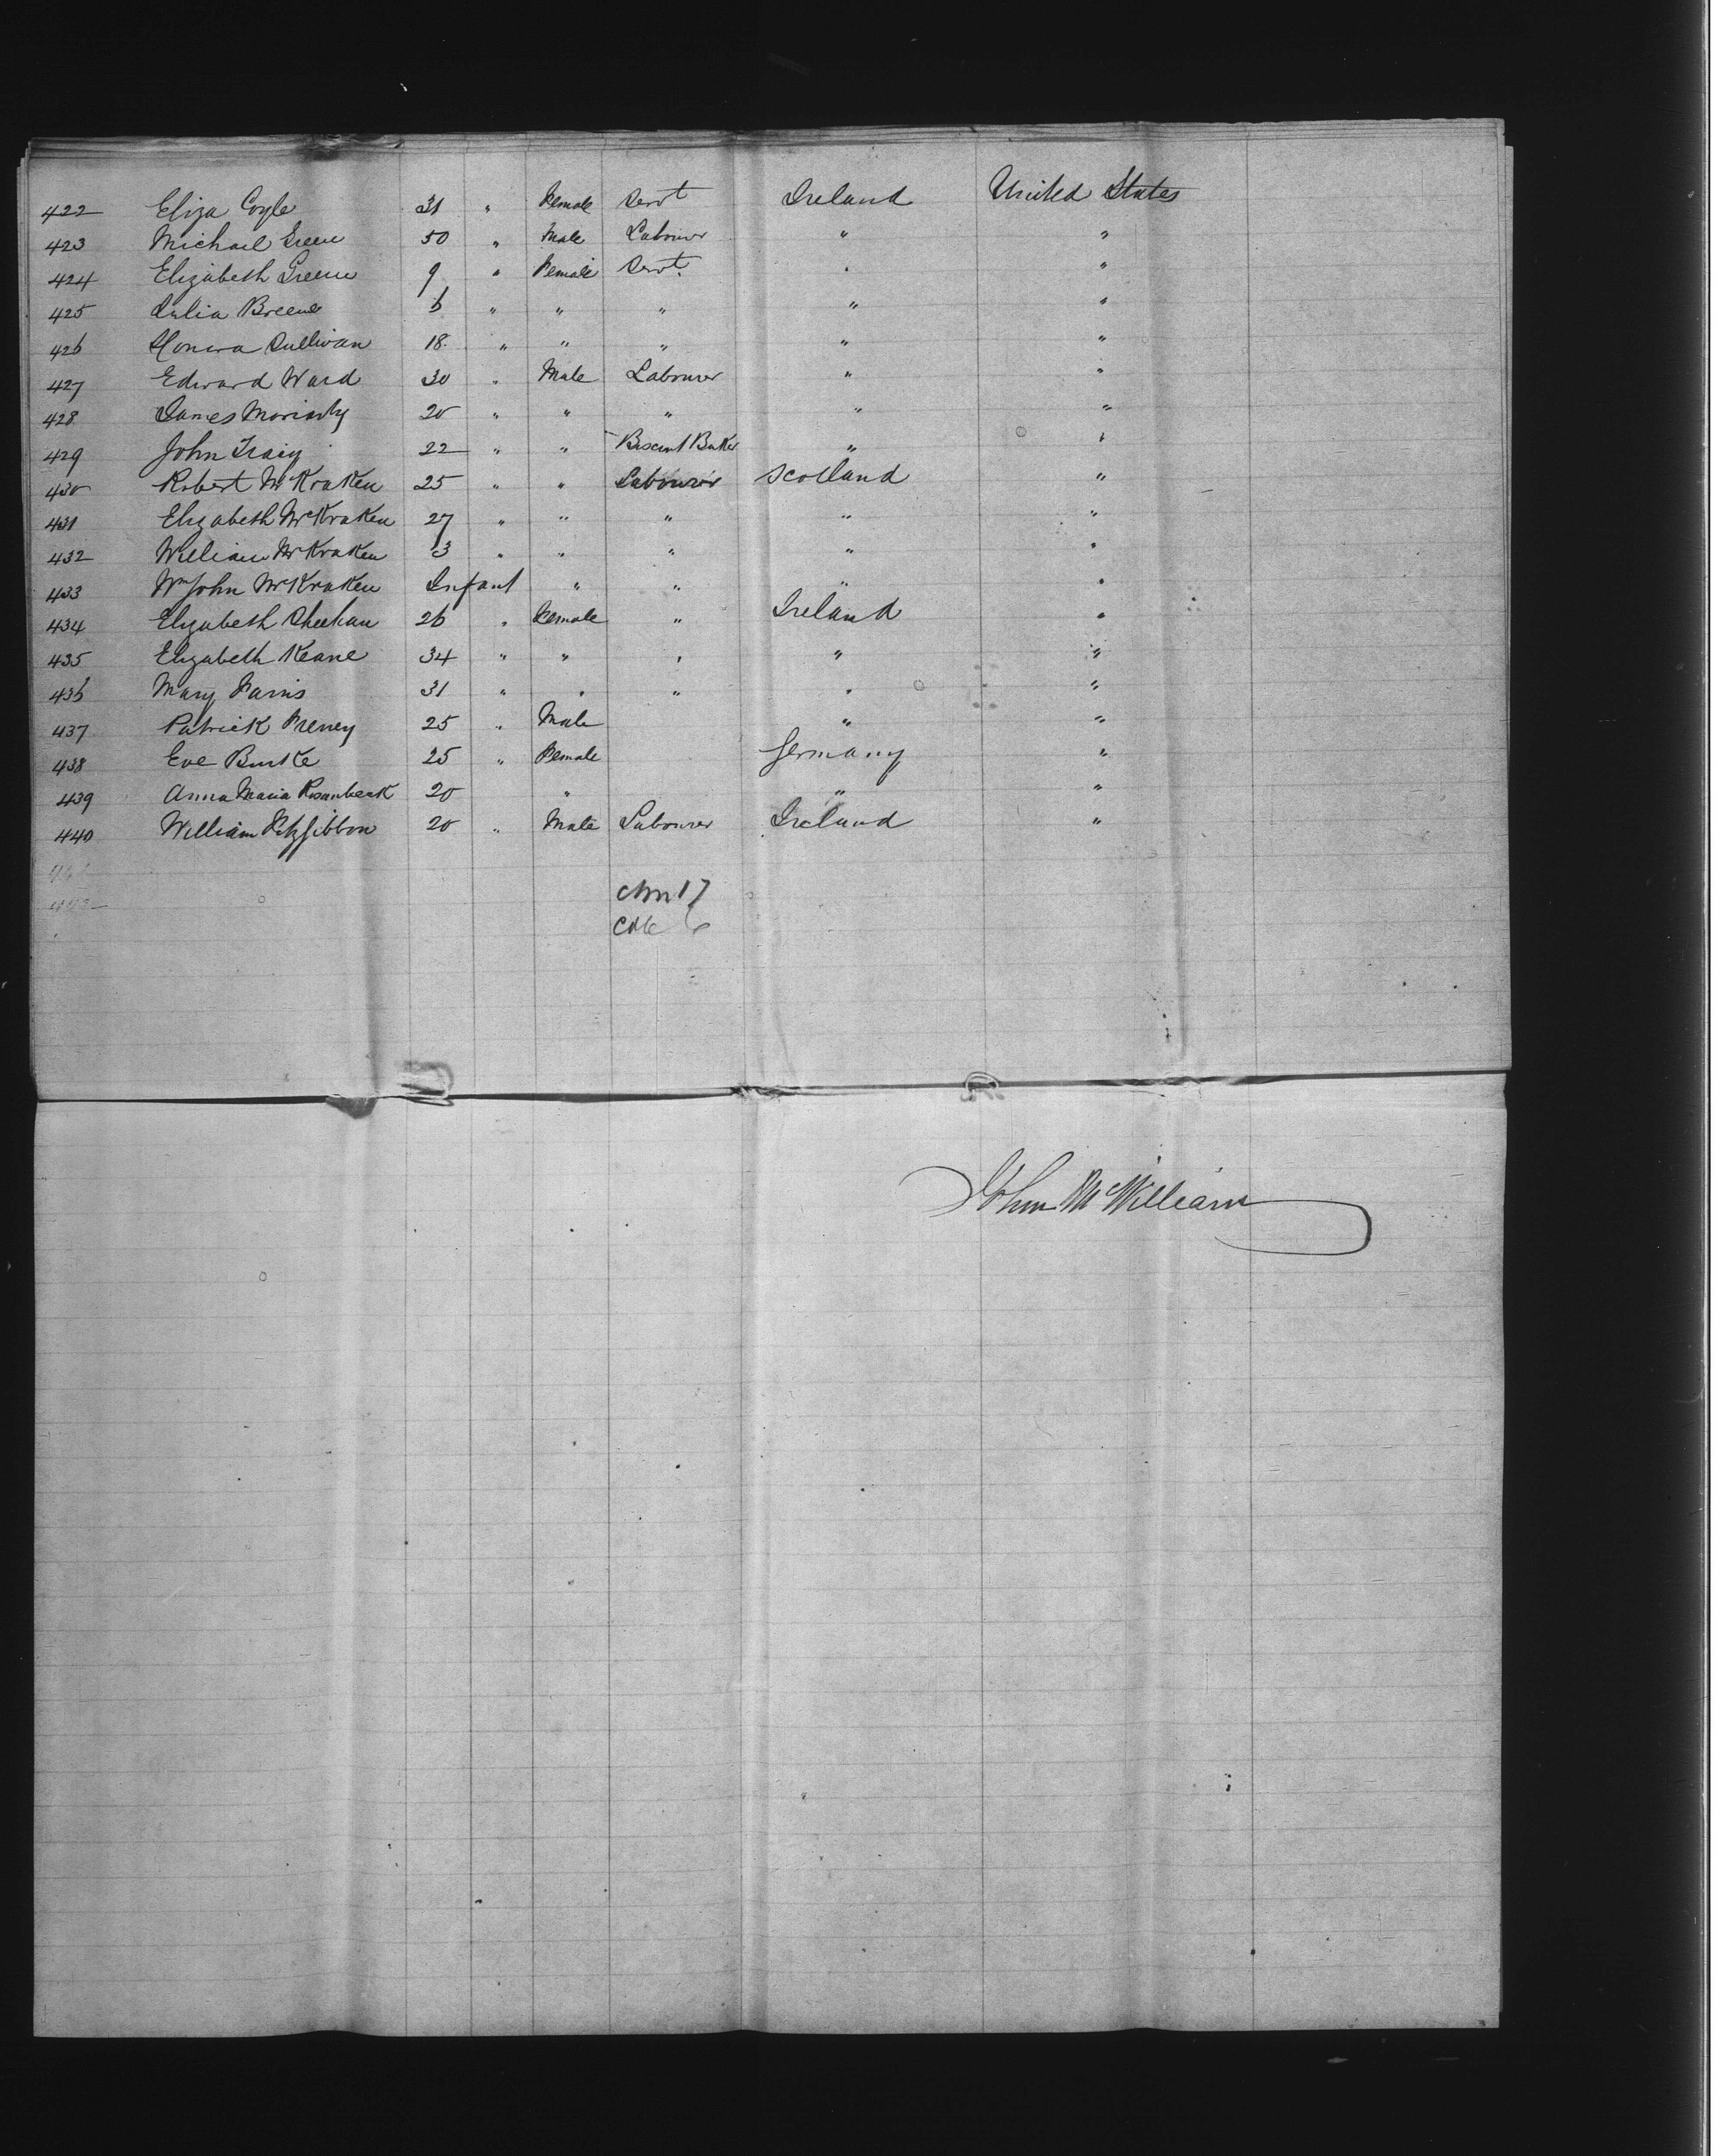 422 Eliza Coyle 31 " Female Servt Ireland United States
423 Michael Green 50 " Male Labourer " "
424 Elizabeth Green 9 " Female Servt. " "
425 Julia Breene 6 " " " " "
426 Honora Sullivan 18 " " " " "
427 Edward Ward 30 " Male Labourer " "
428 James Moriarty 20 " " " " "
429 John Tracy 22 " " Biscuit Baker " "
430 Robert McKraken 25 " " Labourer Scotland "
431 Elizabeth McKraken 27 " " " " "
432 William McKraken 3 " " " " "
433 Wm John McKraken Infant " " " "
434 Elizabeth Sheehan 26 " Female " Ireland "
435 Elizabeth Keane 34 " " " " "
436 Mary Farris 31 " " " " "
437 Patrick Freney 25 " Male " "
438 Eve Burke 25 " Female Germany "
439 Anna Maria Rosenbeck 20 " " "
440 William Fitzgibbon 20 " Male Labourer Ireland "
17
6
John McWilliam